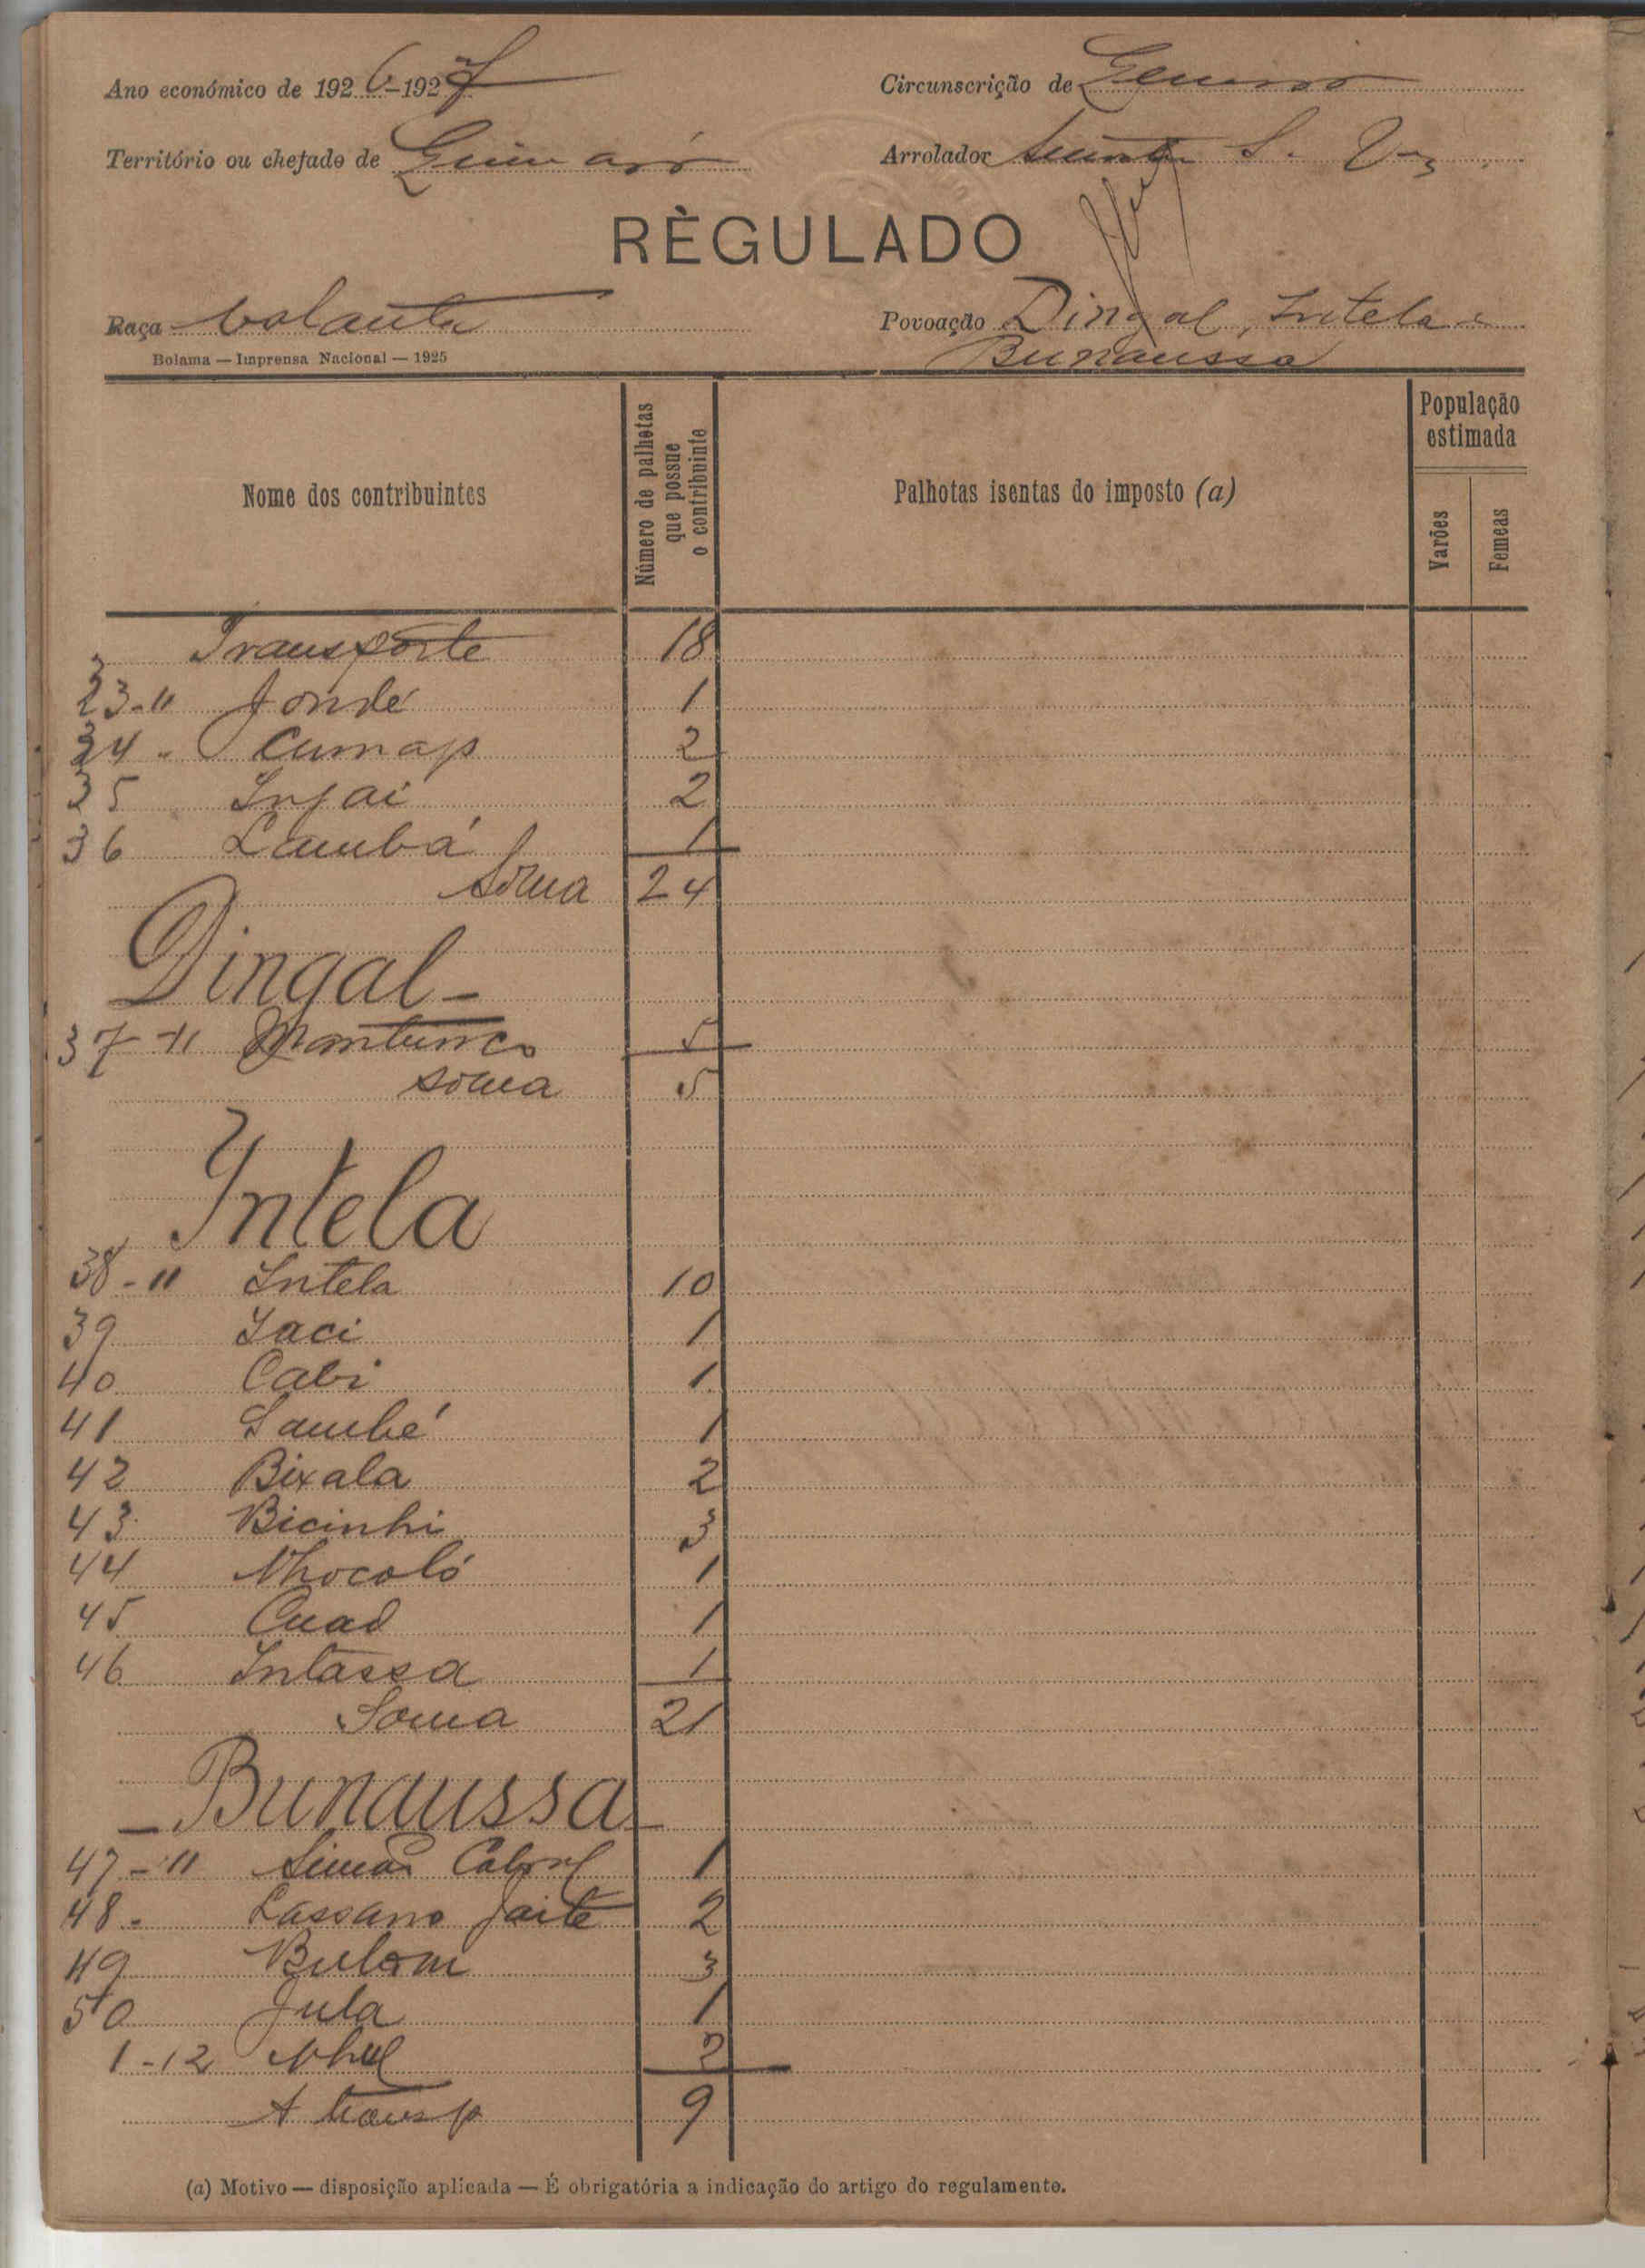 Ano económico de 1926-1927
Circunscrição de
Território ou chefado de
Arrolador S.
RÈGULADO
Raça balanta
Povoação Dingal, Intela e
Bunaussa
Bolama — Imprensa Nacional — 1925
Nome dos contribuintes
Número de palhotas que possue o contribuinte
Palhotas isentas do imposto (a)
População estimada
Varões
Femeas
Transporte 18
33-" Jondé 1
34 - Cumap 2
35 Infai 2
36 Lambá 1
Soma 24
Dingal-
37-11 Mantunco 5
soma 5
Intela
38-" Intela 10
39 Iaci 1
40 Cabi 1
41 Sambé 1
42 Bixala 2
43 Bicinhi 3
44 Nhocoló 1
45 Cuad 1
46 Intassa 1
Soma 21
- Bunaussa -
47-11 Simão Cabral 1
48- Lassano Jaité 2
49 Bulom 3
50 Jula 1
1-12 2
A transp 9
(a) Motivo — disposição aplicada — É obrigatória a indicação do artigo do regulamento.